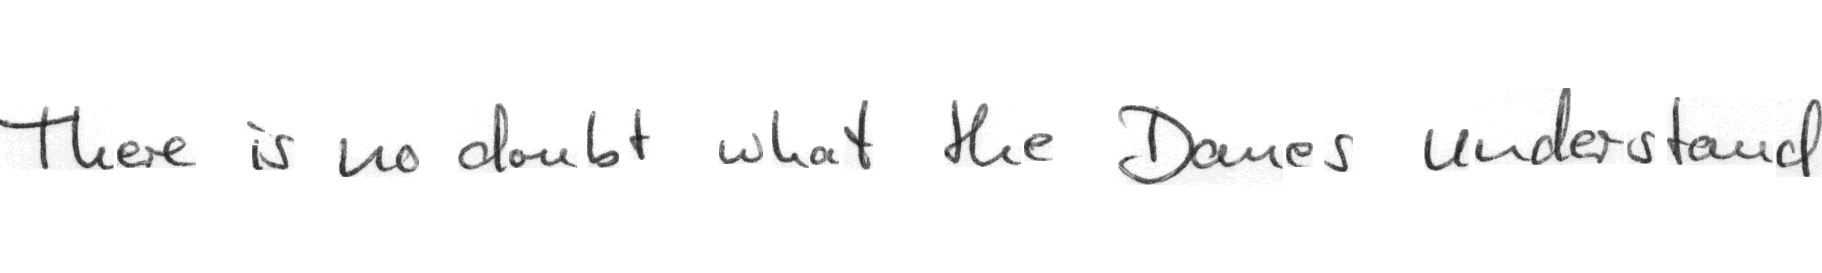 There is no doubt what the Danes understand